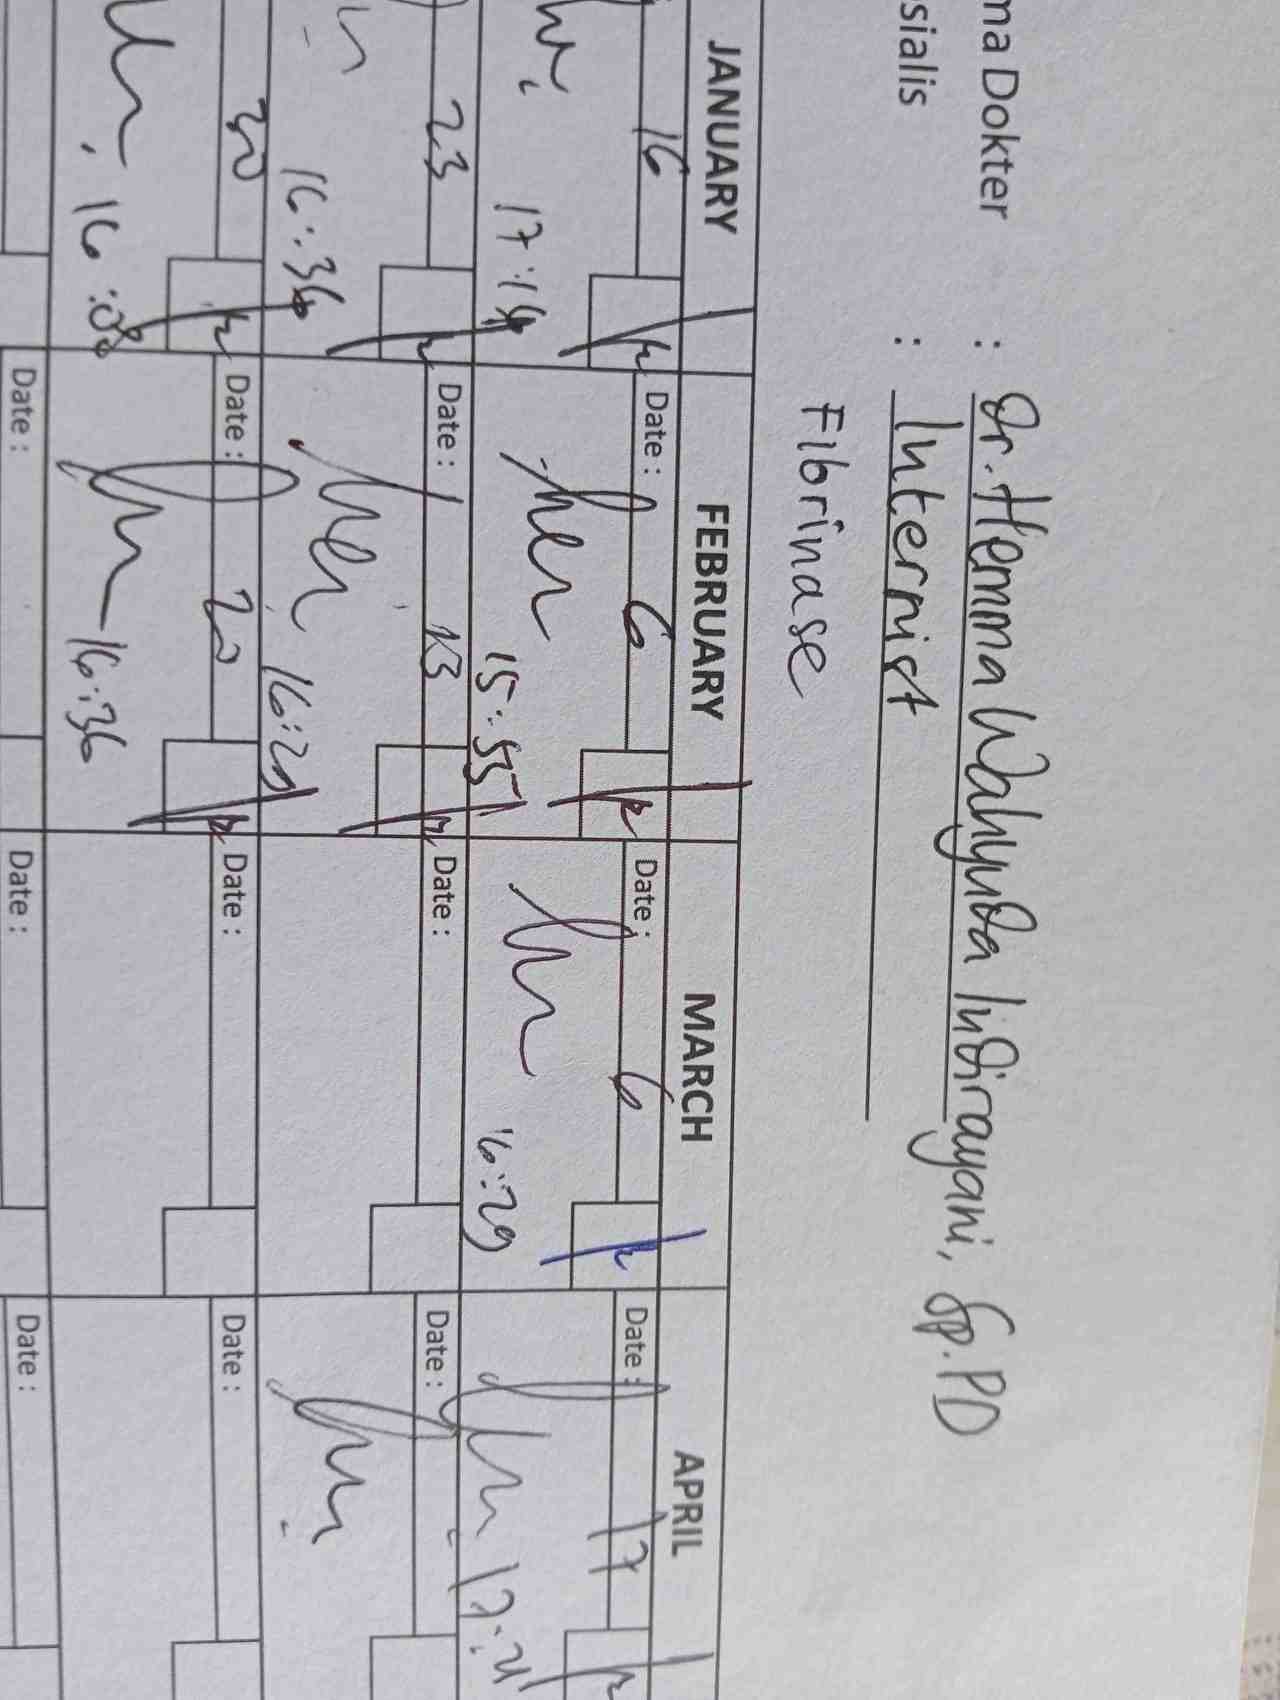 ma Dokter : Dr. Hemma Wahyuda Indirayani, Sp.PD
sialis : Internist
Fibrinase
JANUARY FEBRUARY MARCH APRIL
16 Date : 6 Date : 6 Date : 17
17:14 15:55 16:29 17:21
23 Date : 13 Date : Date :
16:34 16:29
30 Date : 20 Date : Date :
16:08 16:36
Date : Date : Date :